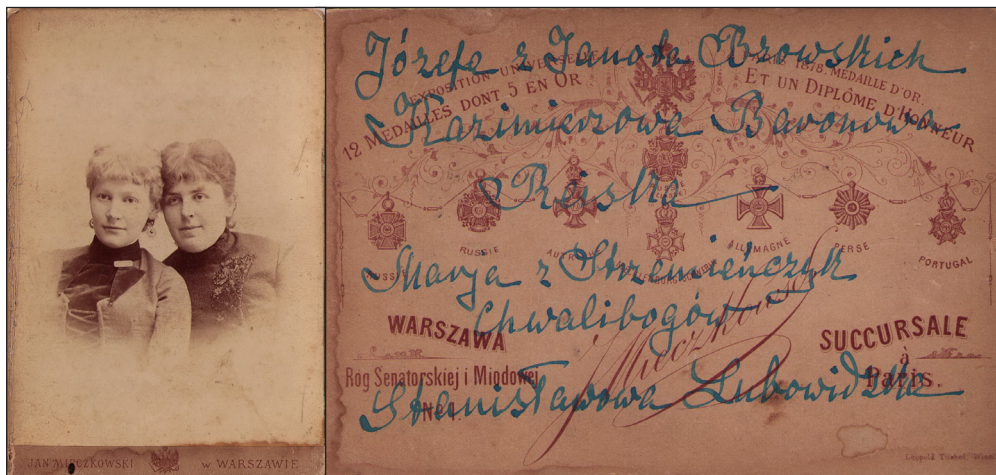 JAN MIECZKOWSKI w WARSZAWIE
Józefa z Janota Bzowskich
Kazimierzowa Baronowa
Reiska
Marya z Strzemieńczyk
Chwalibogów
Stanisławowa Lubowidzka
EXPOSITION UNIVERSELLE PARIS 1878. MEDAILLE D'OR.
12 MEDAILLES DONT 5 EN OR ET UN DIPLÔME D'HONNEUR
RUSSIE
ALLEMAGNE
PERSE
PORTUGAL
WARSZAWA
Róg Senatorskiej i Miodowej
No 1.
JMieczkowski
SUCCURSALE
à
Paris.